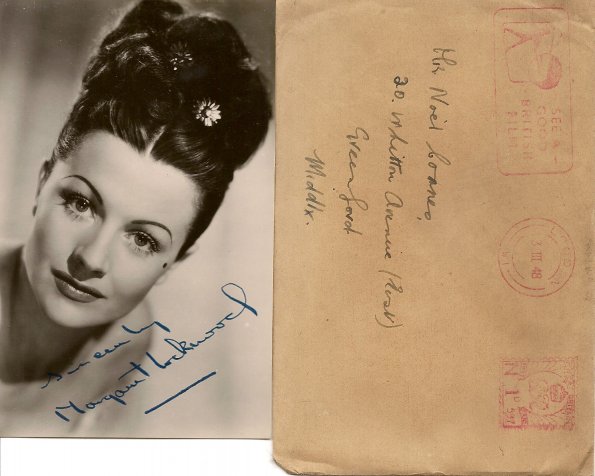 Sincerely
Margaret Lockwood
Mr Noël
20. Whitton Avenue (East)
Greenford
Middlx.
SEE A
GOOD
BRITISH
FILM
3 III 48
N 1D